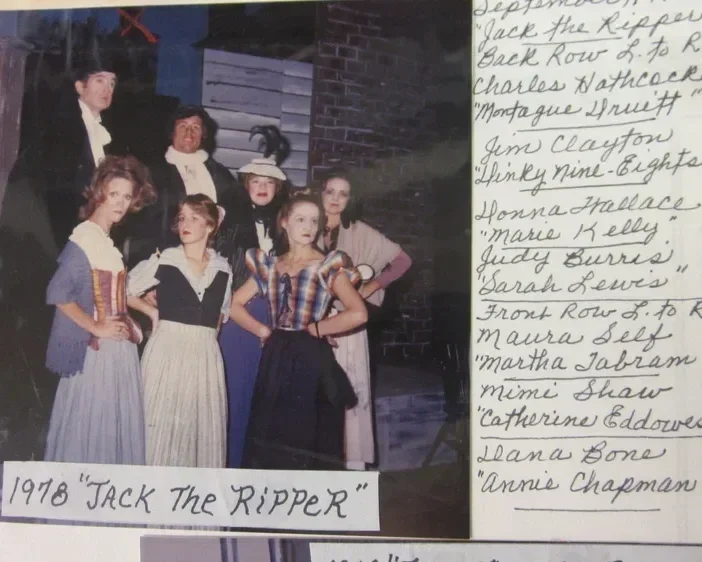 1978 "JACK The RiPPeR"
"Jack the Ripper
Back Row L. to R
Charles Hathcock
"Montague Druitt"
Jim Clayton
"Dinky Nine-Eights
Donna Wallace
"Marie Kelly"
Judy Burris
"Sarah Lewis"
Front Row L. to R
Maura Self
"Martha Tabram
Mimi Shaw
"Catherine Eddowes
Dana Bone
"Annie Chapman